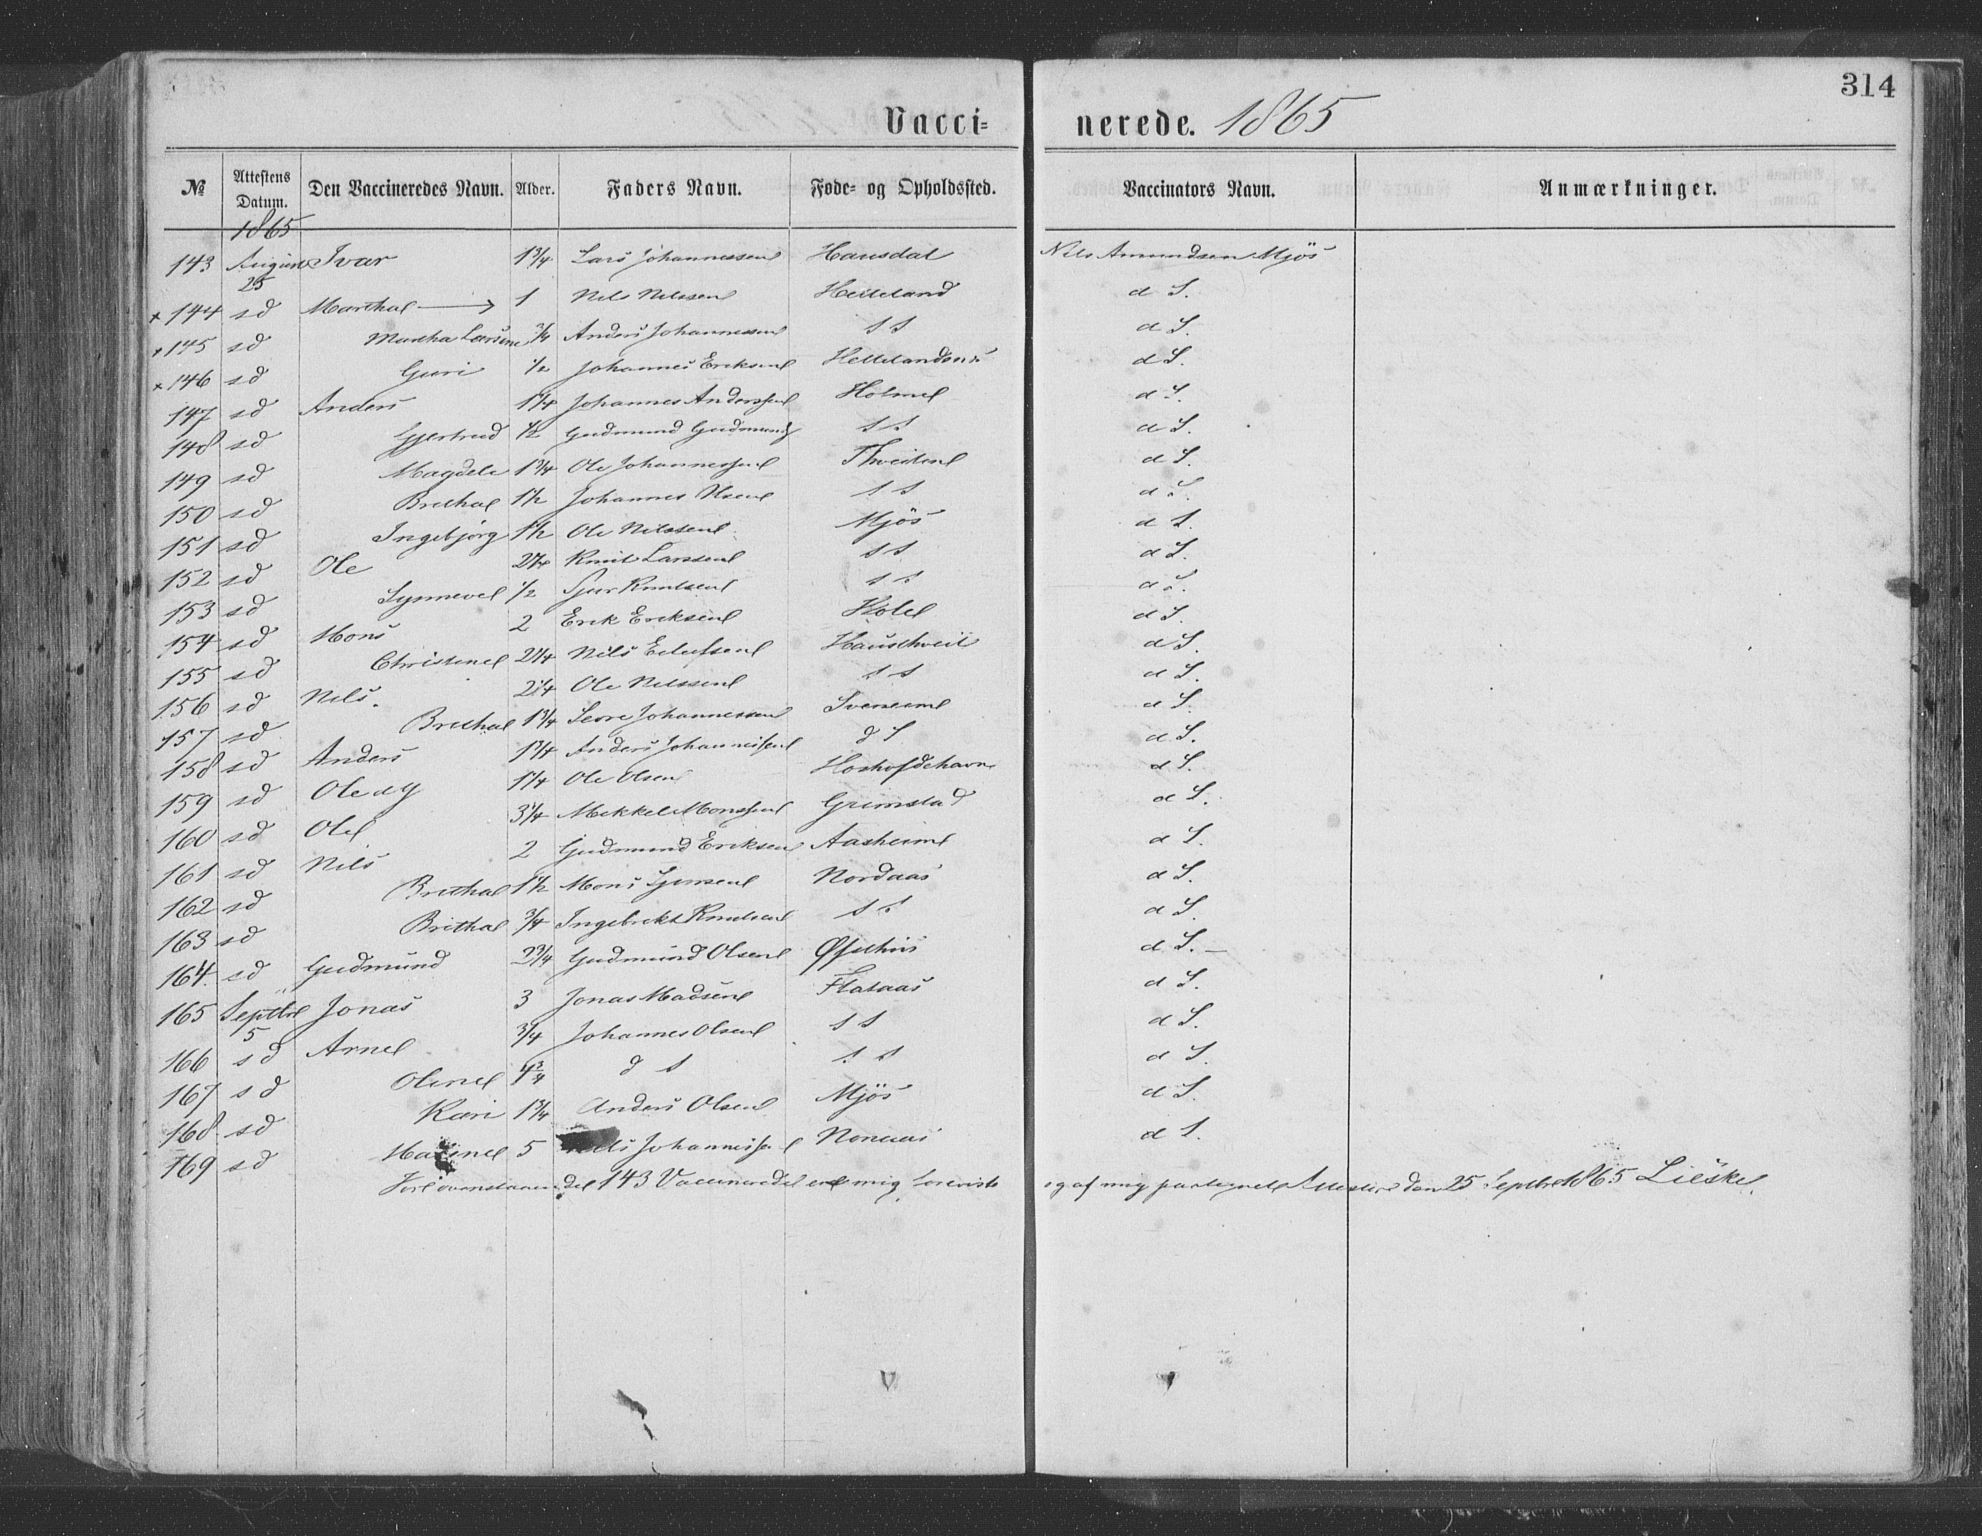 314
Vacci= nerede. 1865
№ Attestens Datum. Den Vaccineredes Navn. Alder. Faders Navn. Føde- og Opholdssted. Vaccinators Navn. Anmærkninger.
1865
143 August 25 Ivar 1 3/4 Lars Johannessen Hausdal Nils Amundsen Mjös
x 144 sd Martha 1 Nils Nilssen Helleland d S.
x 145 sd Martha Larsine 3/4 Anders Johannessen s s d S.
x 146 sd Guri 1/2 Johannes Eriksen d S.
147 sd Anders 1 1/4 Johannes Anderssen Holme d S.
148 sd Gjertrud 1/2 Gudmund Gudmunds s s d S.
149 sd Magdele 1 3/4 Ole Johannessen Thveiten d S.
150 sd Britha 1 1/2 Johannes Olsen s s d S.
151 sd Ingebjørg 1 1/2 Ole Nilssen Mjös d S.
152 sd Ole 2 1/4 Knut Larssen s s d S.
153 sd Synneve 1/2 Sjur Knutsen s s d S.
154 sd Mons 2 Erik Eriksen Hole d S.
155 sd Christine 2 1/4 Nils Hausthveit d S.
156 sd Nils. 2 1/4 Ole Nilssen s s d S.
157 sd Britha 1 3/4 Johannessen d S.
158 sd Anders 1 3/4 Anders Johannessen d S d S.
159 sd Ole 1 1/4 Ole Olsen d S.
160 sd Ole 3 1/4 Mikkel Monssen Grimstad d S.
161 sd Nils 2 Gudmund Eriksen Aasheim d S.
162 sd Britha 1 1/2 Mons Nordaas d S.
163 sd Britha 3/4 Ingebrikt Knutsen s s d S.
164. sd Gudmund 2 3/4 Gudmund Olsen Øfsthus d S.
165 Septbr 5 Jonas 3 Jonas Madsen Flataas d S.
166 sd Arne 3/4 Johannes Olsen s s d S.
167 sd Oline 4 3/4 d s s s d S.
168 sd Kari 1 3/4 Anders Olsen Mjös d S.
169 sd Maline 5 Nils Johannessen d S.
143 Vaccinerede er mig og af mig Attester den 25 Septbr 1865 Lieske